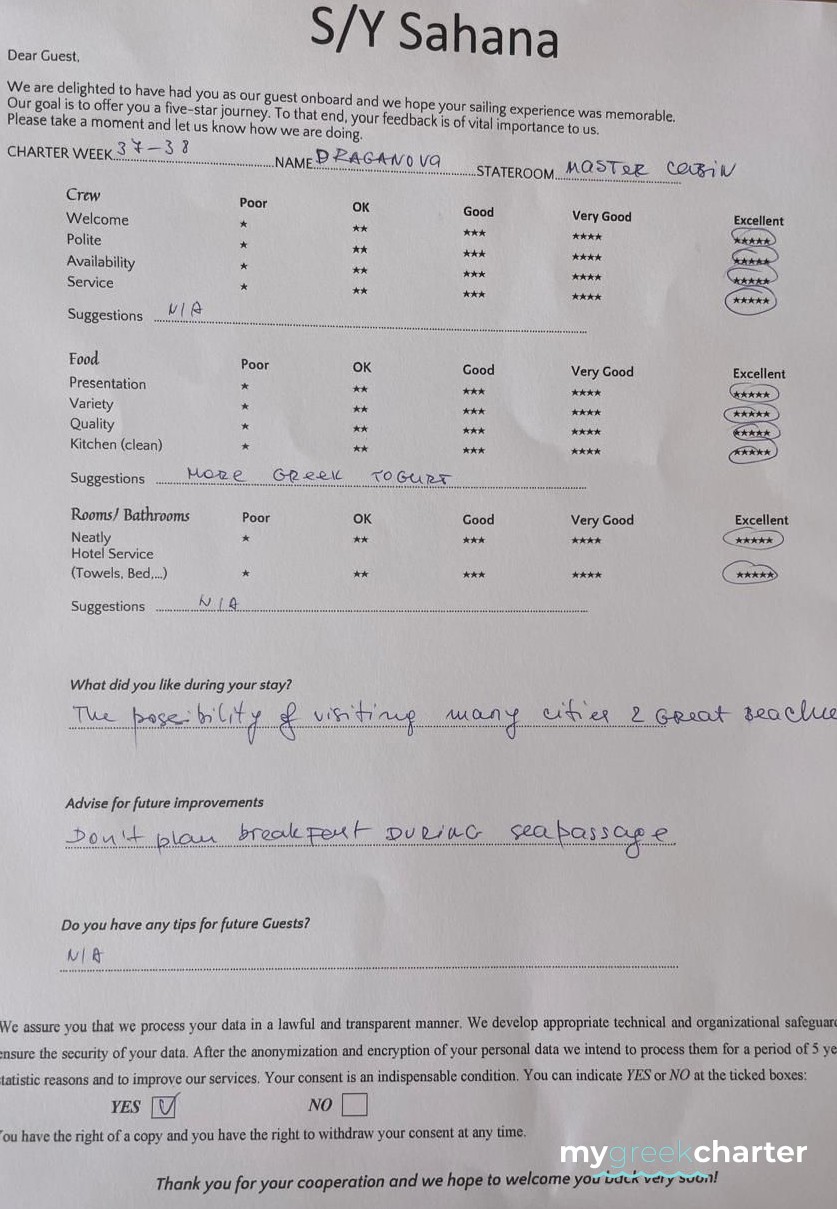 S/Y Sahana
Dear Guest,
We are delighted to have had you as our guest onboard and we hope your sailing experience was memorable.
Our goal is to offer you a five-star journey. To that end, your feedback is of vital importance to us.
Please take a moment and let us know how we are doing.
CHARTER WEEK 37-38 NAME DRAGANOVA STATEROOM MASTER CABIN
Crew Poor OK Good Very Good Excellent
Welcome ★ ★★ ★★★ ★★★★ ★★★★★
Polite ★ ★★ ★★★ ★★★★ ★★★★★
Availability ★ ★★ ★★★ ★★★★ ★★★★★
Service ★ ★★ ★★★ ★★★★ ★★★★★
Suggestions N/A
Food Poor OK Good Very Good Excellent
Presentation ★ ★★ ★★★ ★★★★ ★★★★★
Variety ★ ★★ ★★★ ★★★★ ★★★★★
Quality ★ ★★ ★★★ ★★★★ ★★★★★
Kitchen (clean) ★ ★★ ★★★ ★★★★ ★★★★★
Suggestions MORE GREEK YOGURT
Rooms/ Bathrooms Poor OK Good Very Good Excellent
Neatly ★ ★★ ★★★ ★★★★ ★★★★★
Hotel Service
(Towels, Bed,...) ★ ★★ ★★★ ★★★★ ★★★★★
Suggestions N/A
What did you like during your stay?
The possibility of visiting many cities & GREAT BEACHE
Advise for future improvements
Don't plan breakfast DURING seapassage
Do you have any tips for future Guests?
N/A
We assure you that we process your data in a lawful and transparent manner. We develop appropriate technical and organizational safeguar
ensure the security of your data. After the anonymization and encryption of your personal data we intend to process them for a period of 5 ye
tatistic reasons and to improve our services. Your consent is an indispensable condition. You can indicate YES or NO at the ticked boxes:
YES NO
You have the right of a copy and you have the right to withdraw your consent at any time.
mygreekcharter
Thank you for your cooperation and we hope to welcome you back very soon!